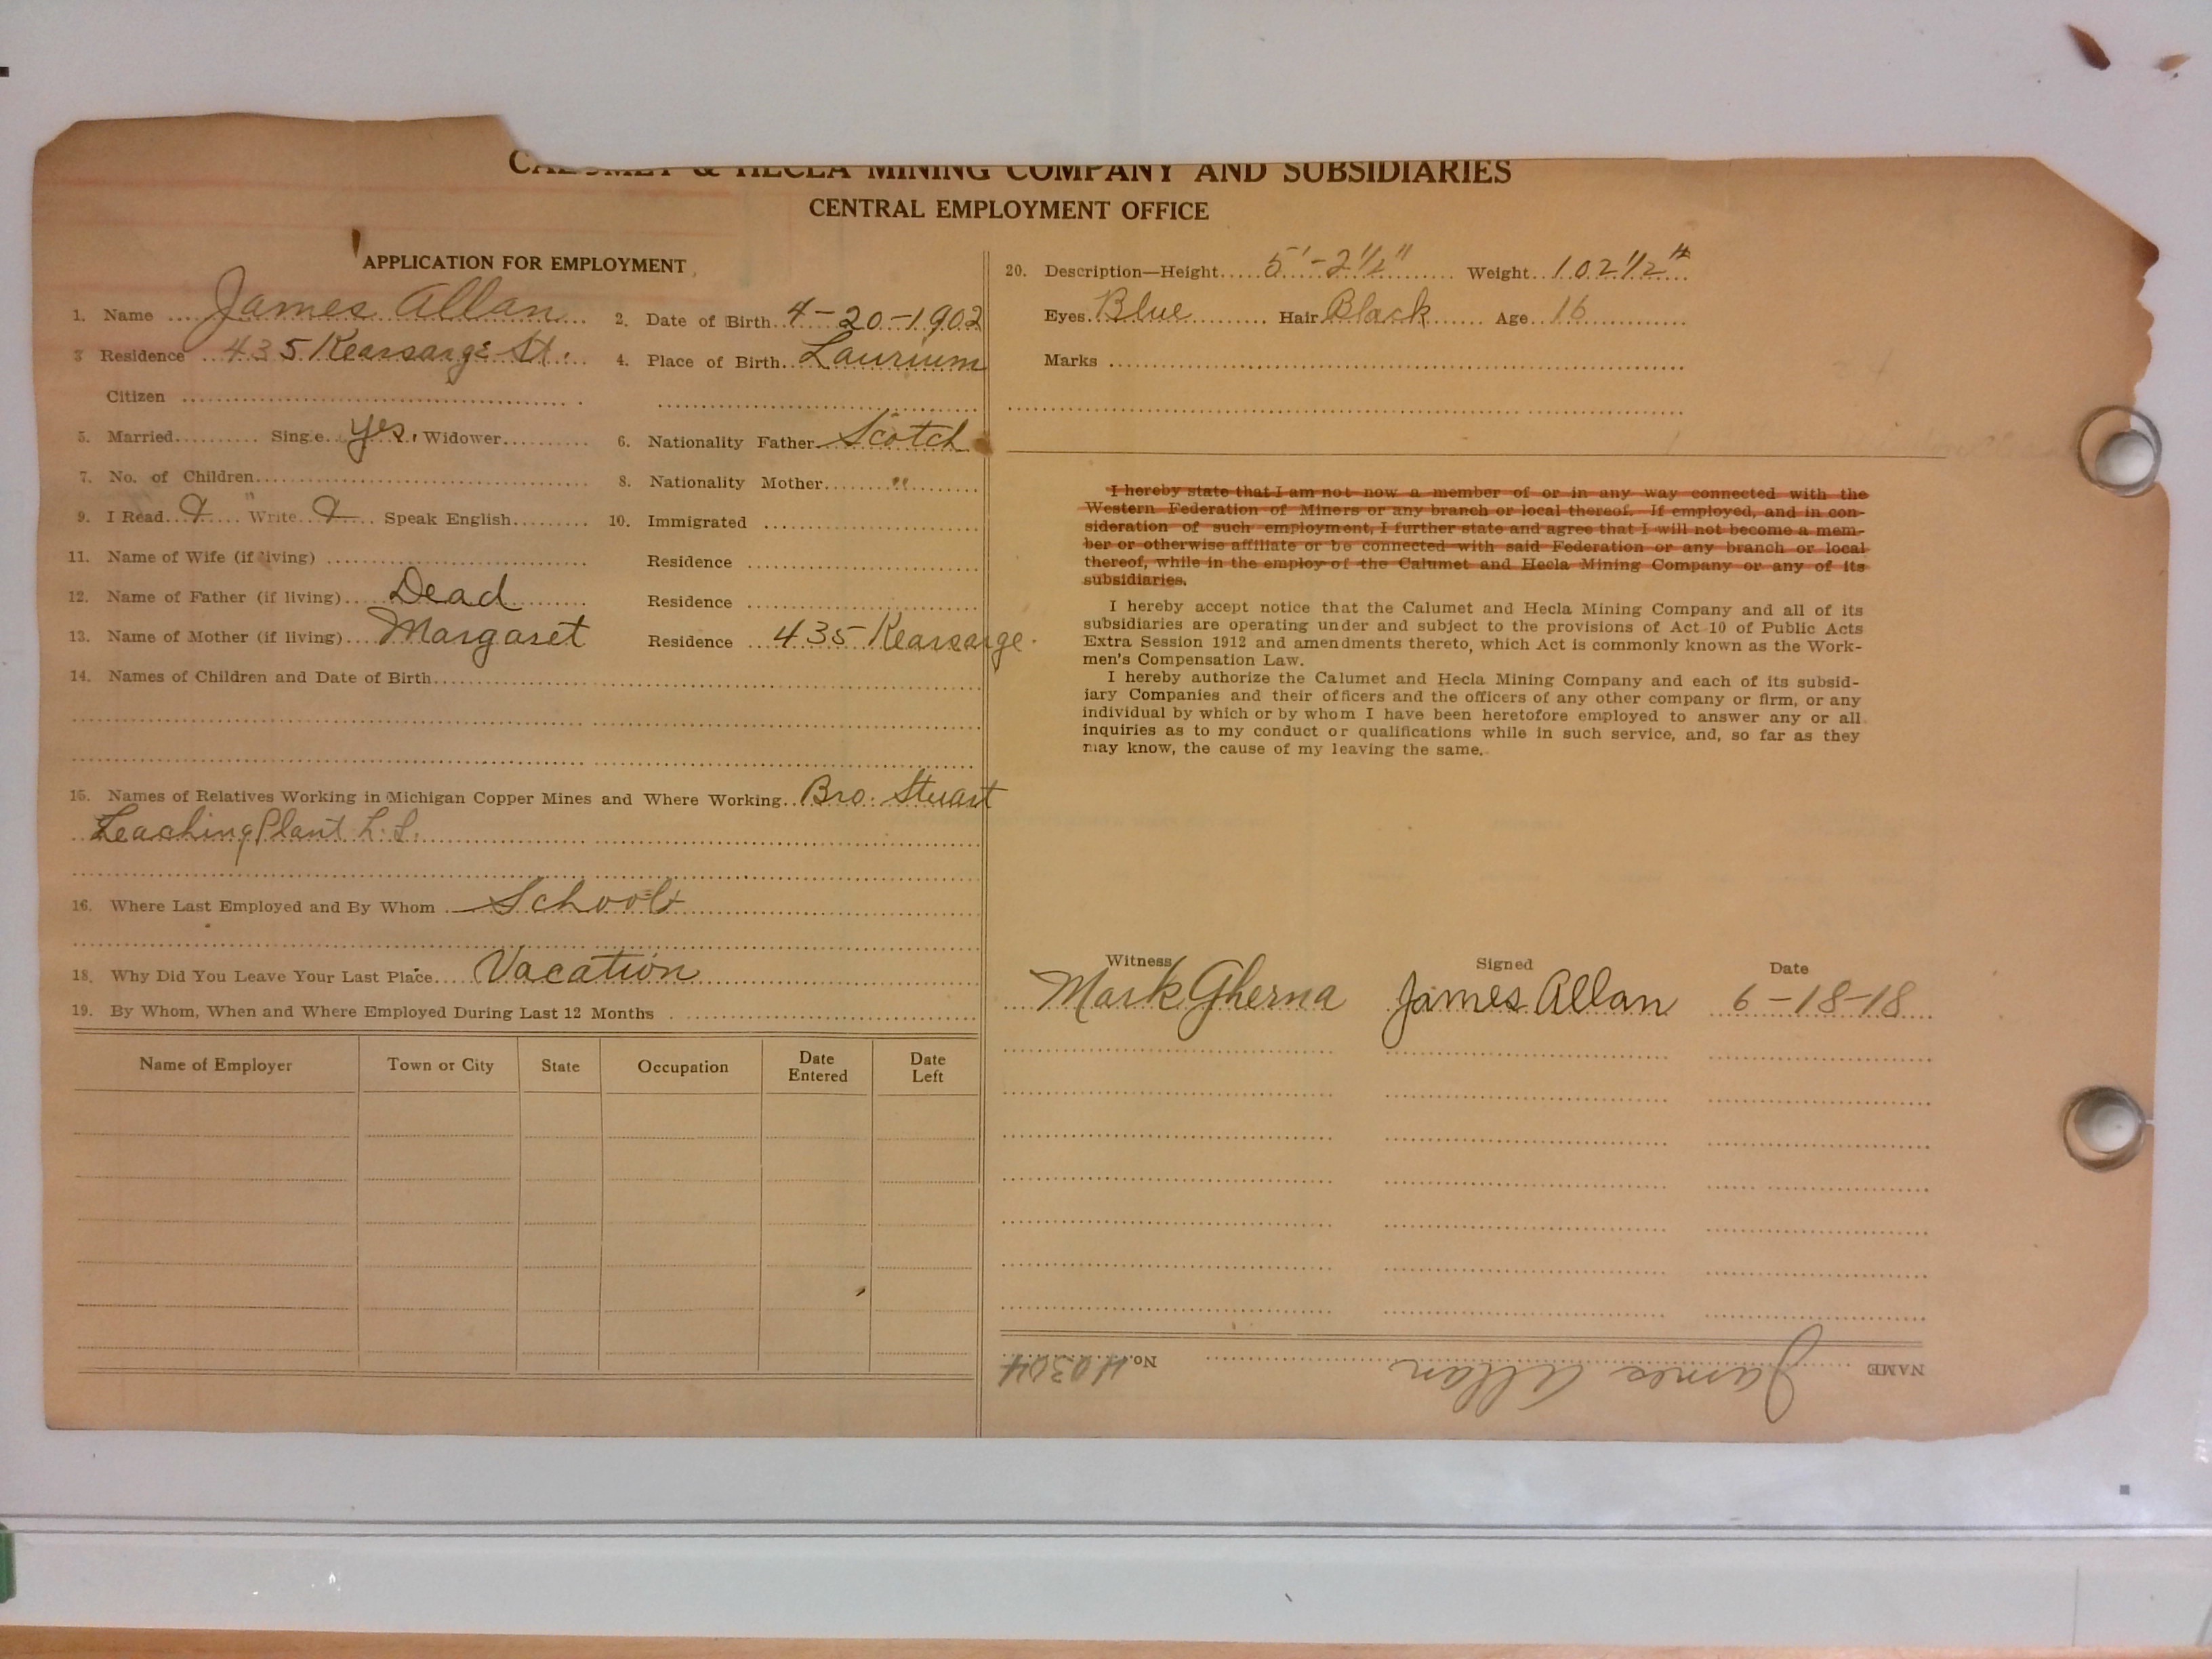 CALUMET & HECLA MINING COMPANY AND SUBSIDIARIES
CENTRAL EMPLOYMENT OFFICE
APPLICATION FOR EMPLOYMENT
1. Name James Allan 2. Date of Birth 4-20-1902
3 Residence 435 Kearsarge St. 4. Place of Birth Laurium
Citizen
5. Married Single yes. Widower 6. Nationality Father Scotch
7. No. of Children 8. Nationality Mother "
9. I Read Write Speak English 10. Immigrated
11. Name of Wife (if living) Residence
12. Name of Father (if living) Dead Residence
13. Name of Mother (if living) Margaret Residence 435 Kearsarge.
14. Names of Children and Date of Birth
15. Names of Relatives Working in Michigan Copper Mines and Where Working Bro. Stuart
Leaching Plant L.L.
16. Where Last Employed and By Whom School
18. Why Did You Leave Your Last Place Vacation
19. By Whom, When and Where Employed During Last 12 Months
Name of Employer Town or City State Occupation Date Entered Date Left
20. Description—Height 5'-2 1/2" Weight 102 1/2 #
Eyes Blue Hair Black Age 16
Marks
I hereby state that I am not now a member of or in any way connected with the
Western Federation of Miners or any branch or local thereof. If employed, and in con-
sideration of such employment, I further state and agree that I will not become a mem-
ber or otherwise affiliate or be connected with said Federation or any branch or local
thereof, while in the employ of the Calumet and Hecla Mining Company or any of its
subsidiaries.
I hereby accept notice that the Calumet and Hecla Mining Company and all of its
subsidiaries are operating under and subject to the provisions of Act 10 of Public Acts
Extra Session 1912 and amendments thereto, which Act is commonly known as the Work-
men's Compensation Law.
I hereby authorize the Calumet and Hecla Mining Company and each of its subsid-
iary Companies and their officers and the officers of any other company or firm, or any
individual by which or by whom I have been heretofore employed to answer any or all
inquiries as to my conduct or qualifications while in such service, and, so far as they
may know, the cause of my leaving the same.
Witness Signed Date
Mark Gherna James Allan 6-18-18
NAME James Allan No. 40304